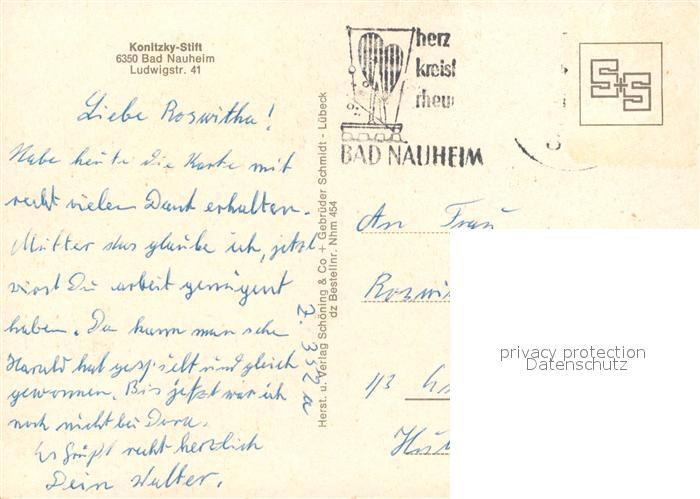 Konitzky-Stift
6350 Bad Nauheim
Ludwigstr. 41
Liebe Roswitha!
Habe heute die Karte mit
recht vielen Dank erhalten.
Mutter das glaube ich, jetzt
wirst Du arbeit genügent
haben. Da kann man sehn
Harald hat gespielt und gleich
gewonnen. Bis jetzt war ich
noch nicht bei Dora.
Es Grüßt recht herzlich
Dein Walter.
Herst. u. Verlag Schöning & Co + Gebrüder Schmidt - Lübeck
dz Bestellnr. Nhm 454
herz
kreisl
rheu
BAD NAUHEIM
S+S
An Frau
privacy protection
Datenschutz